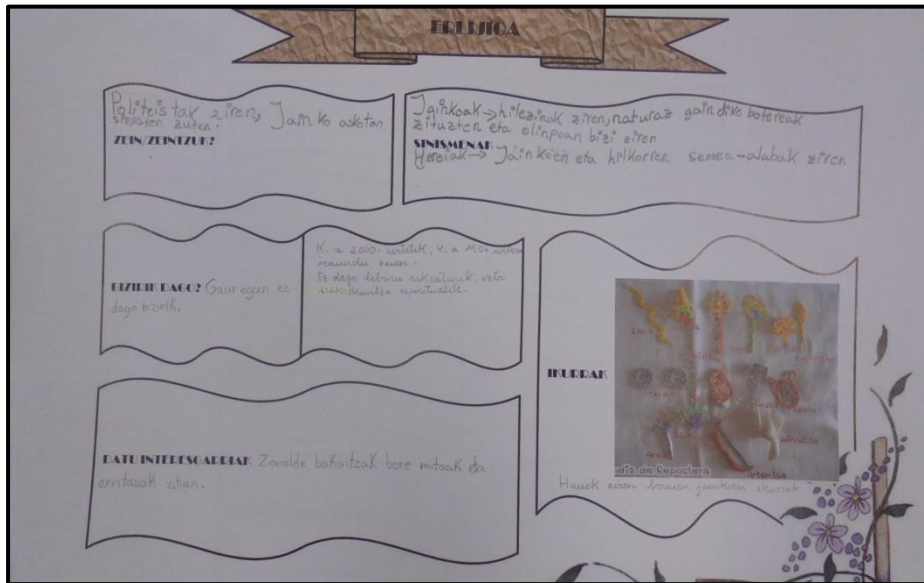 ERLIJIOA
Politeistak ziren, Jainko askotan
sinisten zuten.
ZEIN/ZEINTZUK?
Jainkoak→hilezinak ziren, naturaz gaindiko botereak
zituzten eta olinpoan bizi ziren
SINISMENAK
Heroiak→ Jainkoen eta hilkorren semea-alabak ziren
BIZIRIK DAGO? Gaur egun ez
dago bizirik.
K. a 2000. urtetik, K. a 146. urtera
iraundu zuen.
Ez dago liburu sakraturik, ezta
espiritualik.
IKURRAK
Zeus
Artemisa
Afrodita
Ares
Hauek ziren beraien jainkoen ikurrak
DATU INTERESGARRIAK Zonalde bakoitzak bere mitoak eta
erritualak zituen.
diz de Repostera